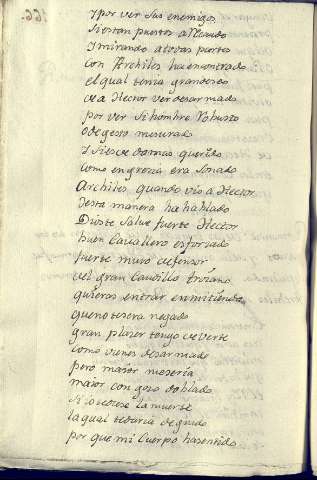 166.
Y por ver sus enemigos
si estan puestos a Recaudo
Y mirando atodas partes
con Archiles ha encontrado
el qual tenia gran deseo
de a Hector ver desarmado
por ver si hombre Robusto
o de gesto mesurado
Y si es de damas querido
como en grecia era sonado
Archiles quando vio a Hector
desta manera ha hablado
Dioste Salve fuerte Hector
buen Cavallero esforzado
fuerte muro defensor
del gran Caudillo troiano
quieras entrar en mi tienda
que no te sera negado
gran plazer tengo de verte
como vienes desarmado
pero maior me seria
maior con gozo doblado
si io te diese la muerte
la qual te daria de grado
por que mi Cuerpo ha sentido